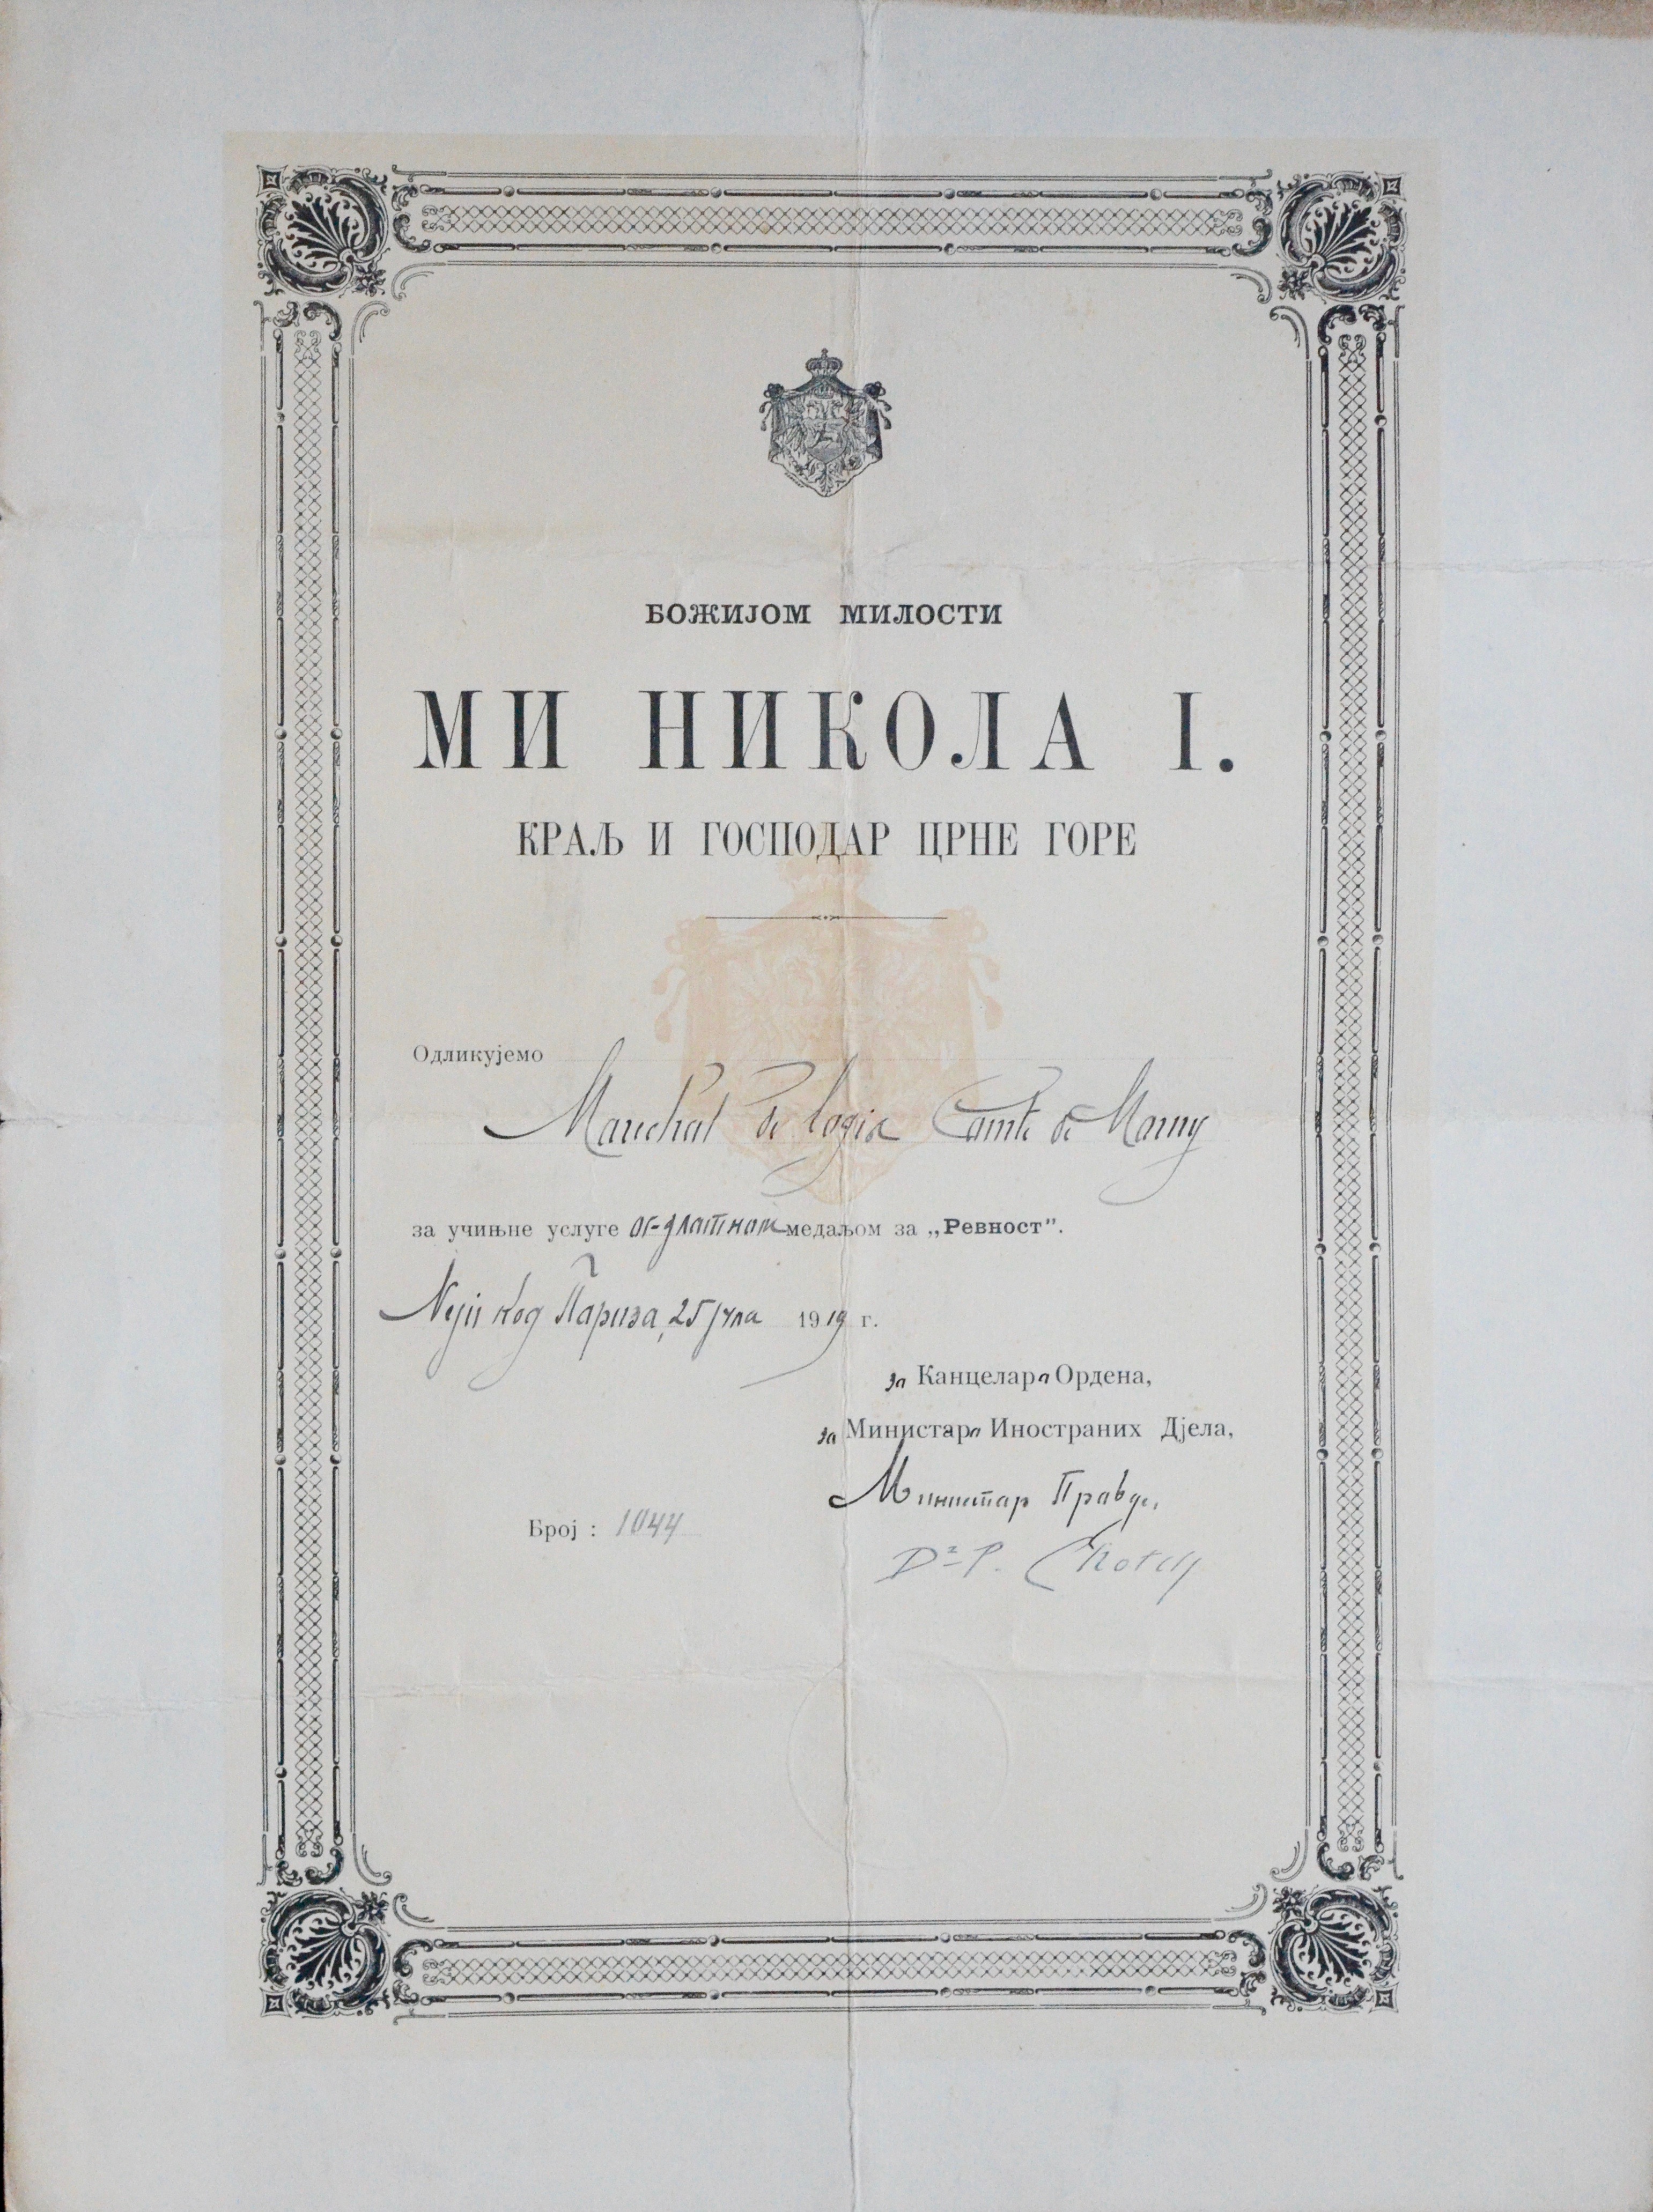 БОЖИЈОМ МИЛОСТИ
МИ НИКОЛА I.
КРАЉ И ГОСПОДАР ЦРНЕ ГОРЕ
Одликујемо
Marechal de logis Comte de Marny
за учињне услуге медаљом за „Ревност".
Неји код Париза, 25 јула 1919 г.
за Канцелара Ордена,
за Министара Иностраних Дјела,
Министар Правде,
Број : 1044
Dr P. Chotch